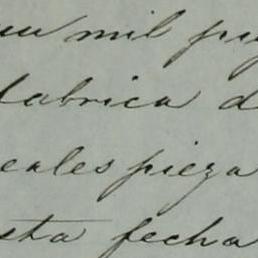 mil
fabrica d
eales pieza
sta fecha